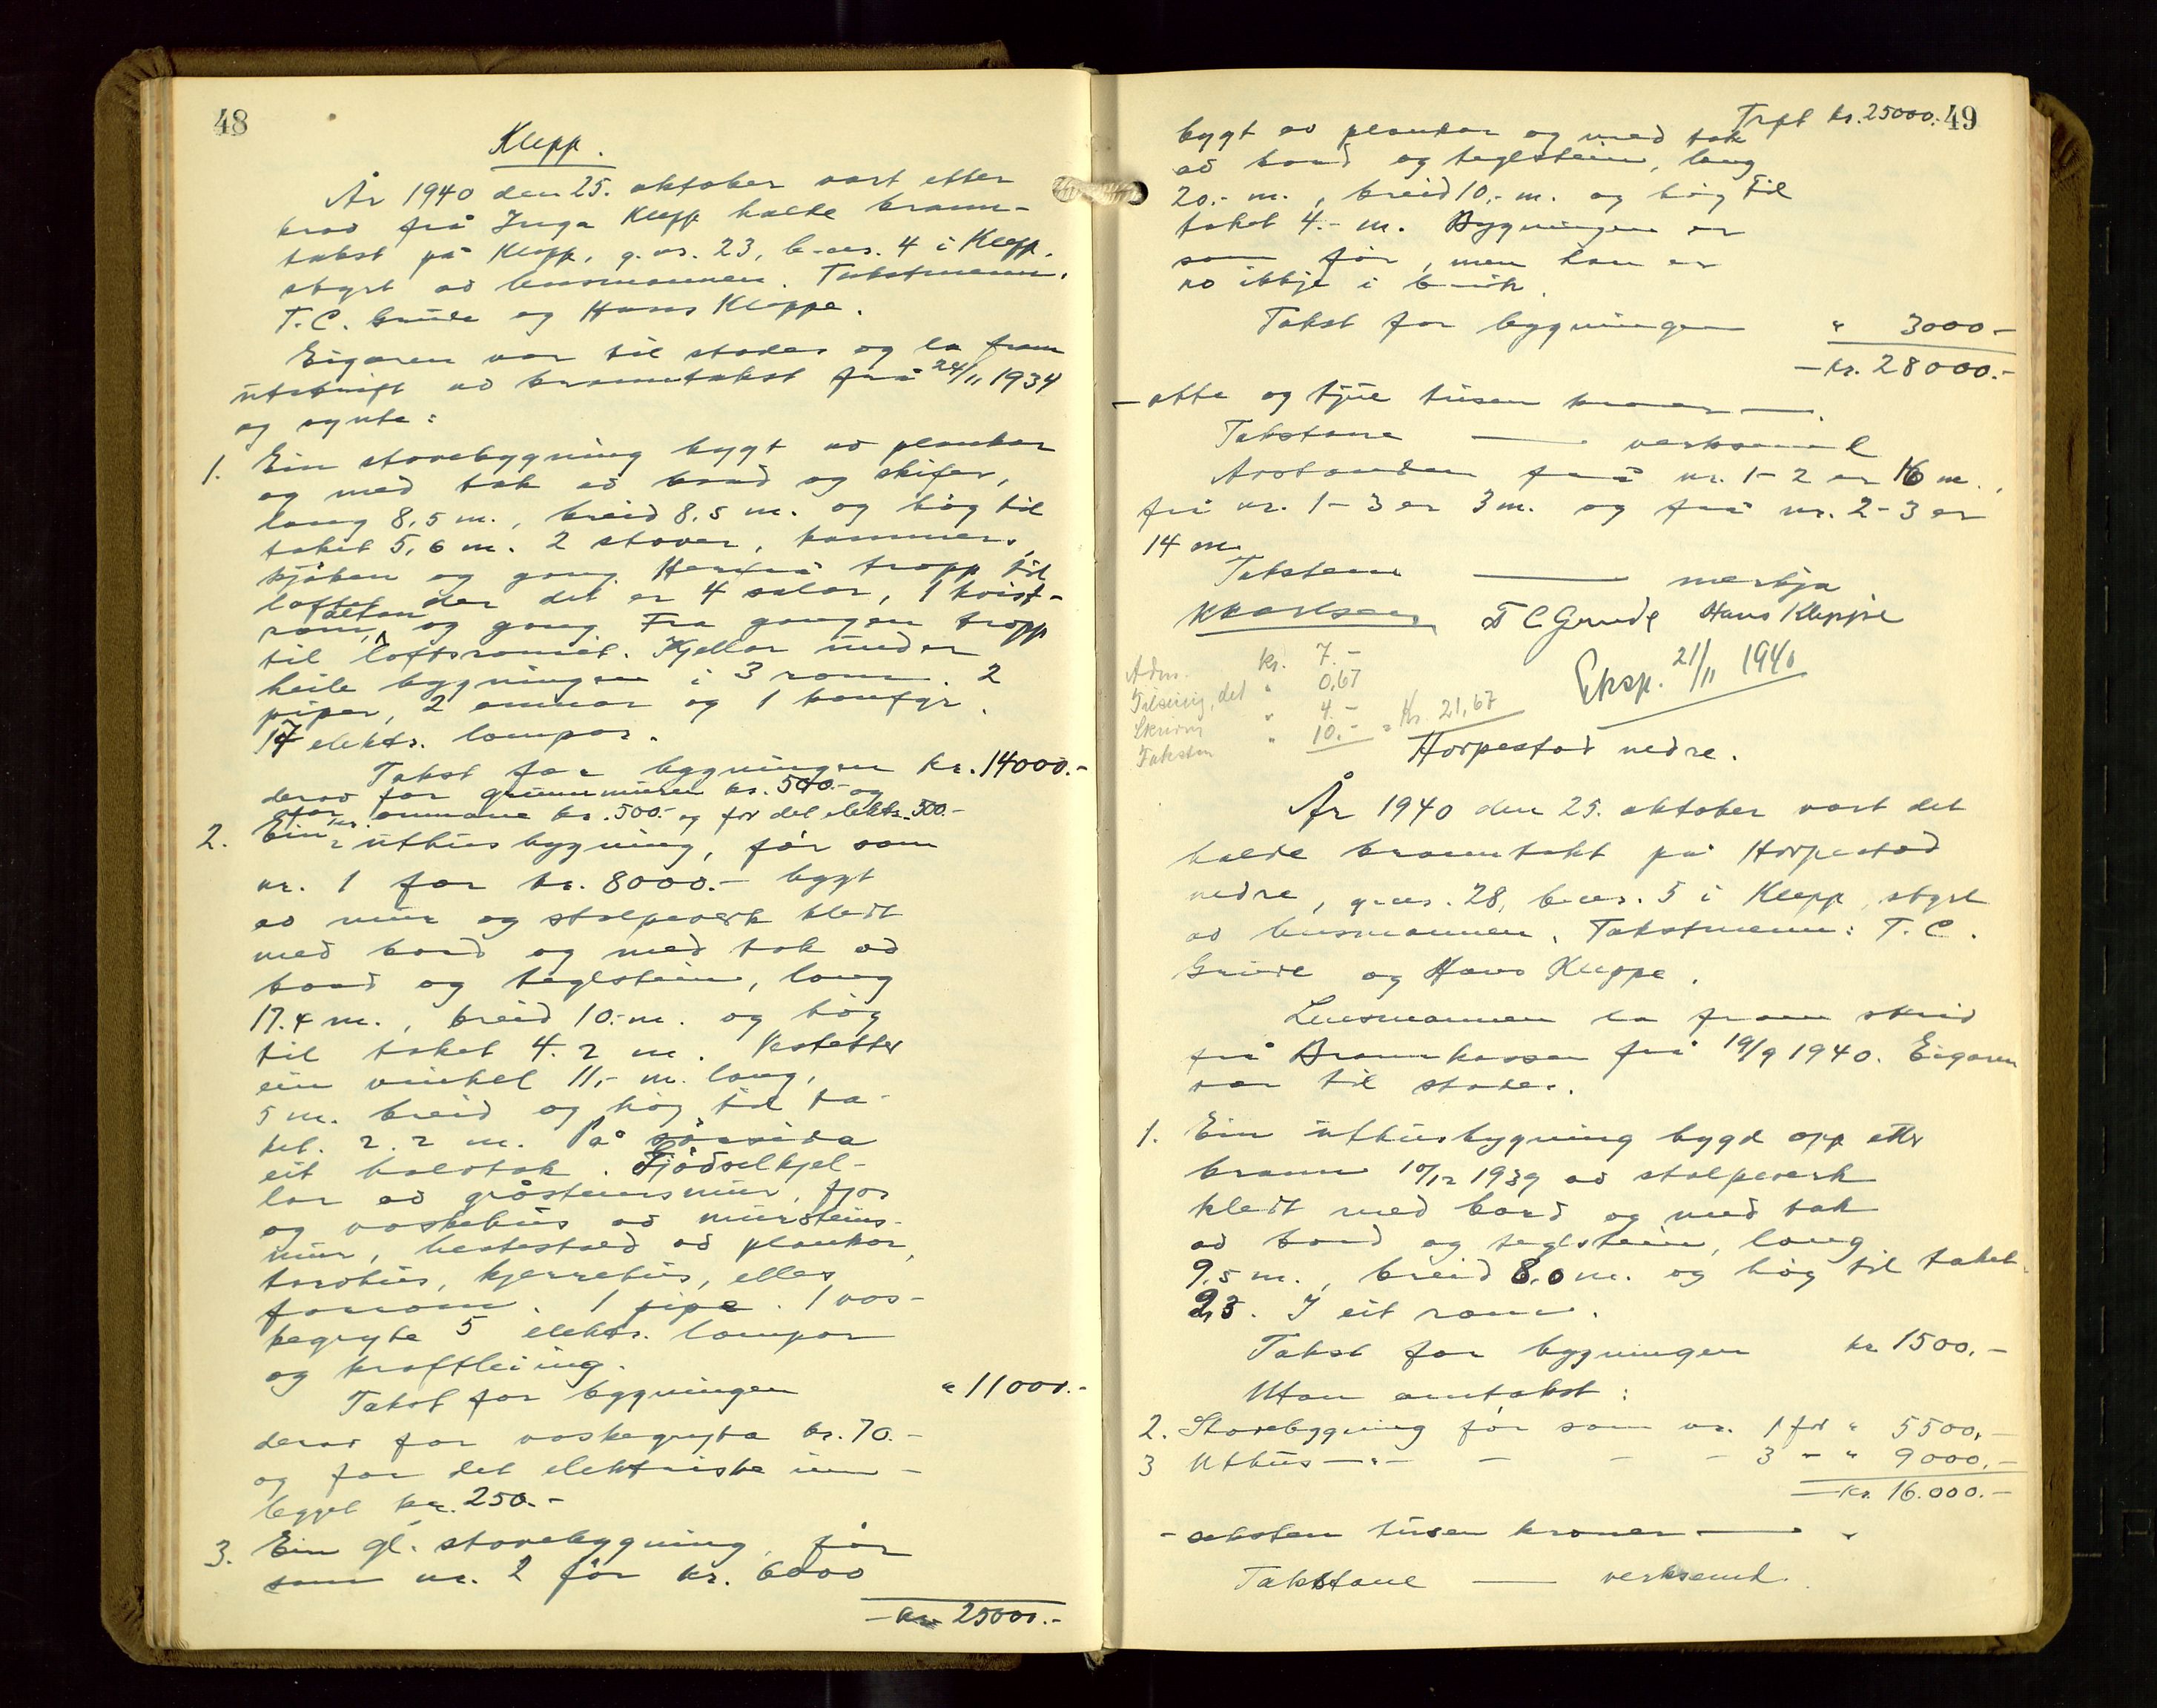 48
Klepp.
År 1940 den 25. oktober vart etter
krav frå Inga Klepp halde brann-
takst på Klepp, g.nr. 23, b.nr. 4 i Klepp,
styrt av lensmannen. Takstmenn:
T. C. Grude og Hans Kleppe.
Eigaren var til stades og la fram
utskrift av branntakst frå 24/11 1934
og synte:
1. Ein stovebygning bygt av plankar
og med tak av bord og skifer,
lang 8,5 m., breid 8,5 m. og høg til
taket 5,6 m. 2 stover, kammer,
kjøken og gang. Herfrå tropp til
loftet der det er 4 salar, 1 kvist-
rom, altan og gang. Fra gangen tropp
til loftsromet. Kjellar under
heile bygningen i 3 rom. 2
piper, 2 omnar og 1 komfyr.
17 elektr. lampor.
Takst for bygningen kr. 14000.-
derav for grunnmuren kr. 500.- og
for omnane kr. 500.- og for det elektr. 500.-
2. Ein uthusbygning, før som
nr. 1 for kr. 8000.- bygt
av mur og stolpeverk kledt
med bord og med tak av
bord og teglstein, lang
17.4 m., breid 10.- m. og høg
til taket 4.2 m. Vestetter
ein vinkel 11,- m. lang,
5 m. breid og høg til ta-
ket 2.2 m. På sørsida
eit halvtak. Gjødselkjel-
lar av gråsteinsmur, fjos
og vaskehus av mursteins-
mur, hestestald av plankar,
torvhus, kjerrehus, elles
forrom. 1 pipe. 1 vas-
kegryte 5 elektr. lampor
og kraftleiing.
Takst for bygningen " 11000.-
derav for vaskegryta kr. 70.-
og for det elektriske inn-
legget kr. 250.-
3. Ein gl. stovebygning, før
som nr. 2 før kr. 6000
- kr. 25000.-
49
Trpt kr. 25000.-
bygt av plankar og med tak
av bord og teglstein, lang
20.- m., breid 10,- m. og høg til
taket 4.- m. Bygningen er
som før, men han er
no ikkje i bruk.
Takst for bygningen " 3000.-
- kr. 28000.-
- åtte og tjue tusen kroner -.
Takstane — verksemd
Avstanden frå nr. 1-2 er 16 m.,
frå nr. 1-3 er 3 m. og frå nr. 2-3 er
14 m.
Takstene — merkja
T C Grude Hans Kleppe
Adm. kr. 7.-
det " 0,67
Skriving " 4.-
Taksten " 10.- = Kr. 21,67
Eksp. 21/11 1940
Horpestad nedre.
År 1940 den 25. oktober vart det
halde branntakt på Horpestad
nedre, g.nr. 28, b.nr. 5 i Klepp, styrt
av lensmannen. Takstmenn: T. C.
Grude og Hans Kleppe.
Lensmannen la fram skriv
frå Brannkassen frå 19/9 1940. Eigaren
var til stades.
1. Ein uthusbygning bygd opp etter
brann 10/12 1939 av stolpeverk
kledt med bord og med tak
av bord og teglstein, lang
9,5 m., breid 8,0 m. og høg til taket
2,3. I eit rom.
Takst for bygningen kr 1500.-
Utan omtakst:
2. Stovebygning før som nr. 1 for " 5500,-
3 Uthus - " - - - - 3 - " 9000.-
- Kr. 16.000.-
- seksten tusen kroner - .
Takstane — verksemd.